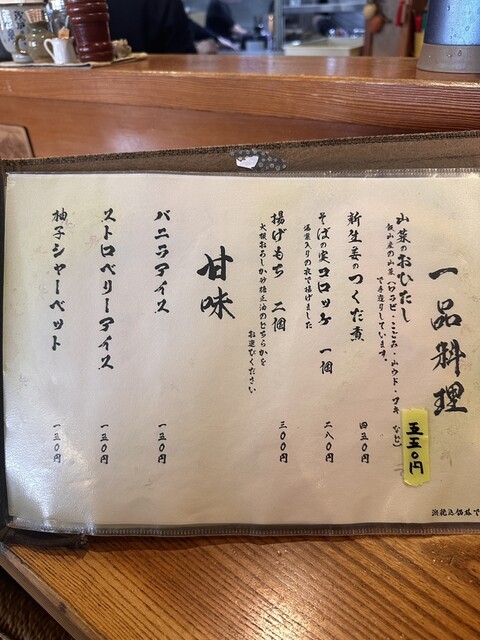 一品料理
山菜のおひたし 五五〇円
飯山産の山菜(ワラビ・こごみ・山ウド・フキ など)
で手造りしています。
新生姜のつくだ煮 四五〇円
そばの実コロッケ 一個 二八〇円
海苔入りの衣で揚げました
揚げもち 二個 三〇〇円
大根おろしか砂糖正油のどちらかを
お選びください
甘味
バニラアイス 一五〇円
ストロベリーアイス 一五〇円
柚子シャーベット 一五〇円
消税込価格で